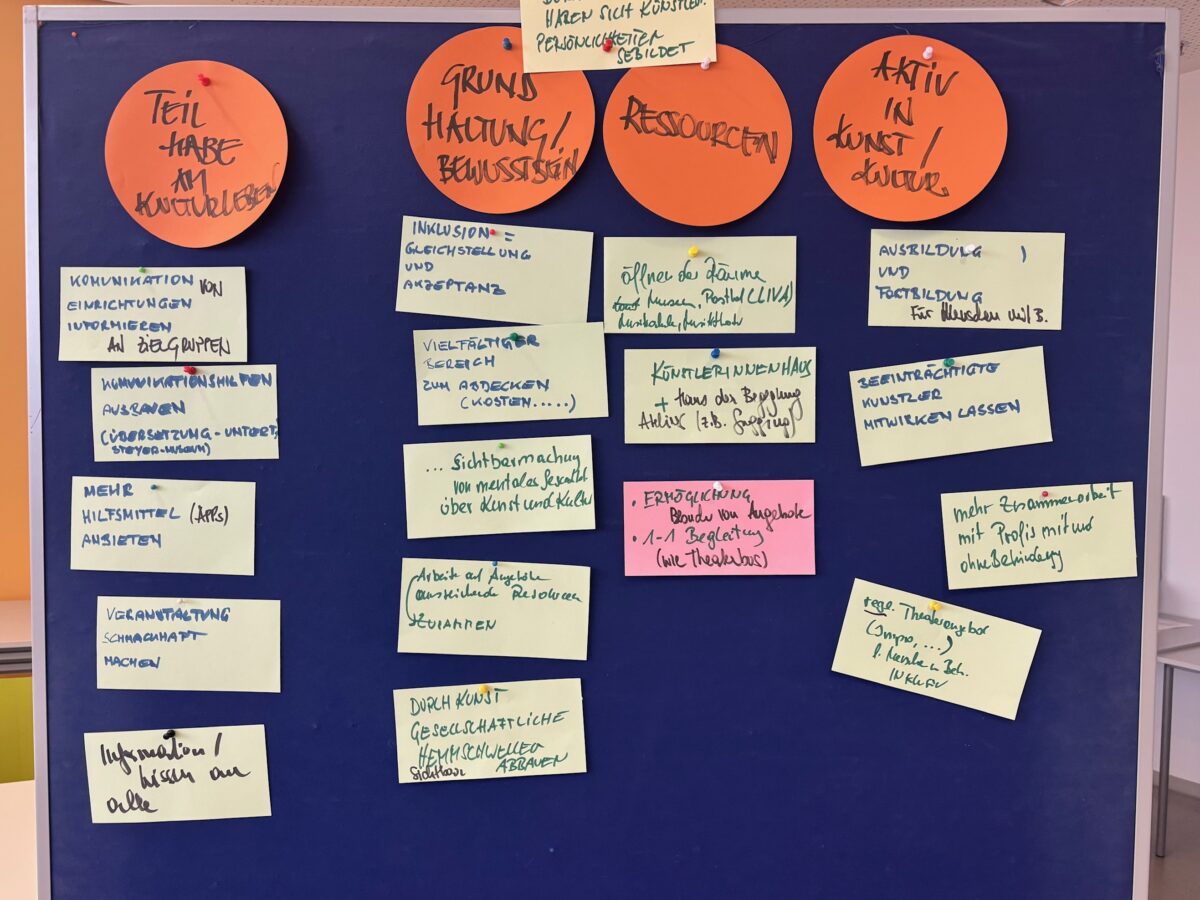 HABEN SICH KÜNSTLER.
PERSÖNLICHKEITEN
GEBILDET
TEIL
HABE
AM
KULTURLEBEN
KOMUNIKATION VON
EINRICHTUNGEN
INFORMIEREN
AN ZIELGRUPPEN
KOMMUNIKATIONSHILFEN
AUSBAUEN
(ÜBERSETZUNG - UNTERT.
STEYER-MUSEUM)
MEHR
HILFSMITTEL (APPs)
ANBIETEN
VERANSTALTUNG
SCHMACKHAFT
MACHEN
Information/
Wissen an
alle
GRUND
HALTUNG/
BEWUSSTSEIN
INKLUSION =
GLEICHSTELLUNG
UND
AKZEPTANZ
VIELFÄLTIGER
BEREICH
ZUM ABDECKEN
(KOSTEN.....)
... Sichtbarmachung
von mentaler
über Kunst und Kultur
Arbeite auf Angebote
ausreichende Resourcen
ZUSAMMEN
DURCH KUNST
GESELLSCHAFTLICHE
HEMMSCHWELLEN
Sichtbar ABBAUEN
RESSOURCEN
öffnen der Räume
Museen, Posthof (LIVA)
KÜNSTLERINNENHAUS
+ Haus der Begegnung
Aktiv (z.B. Gugging)
• ERMÖGLICHUNG
Besuch von Angebote
• 1-1 Begleitung
(wie Theaterbus)
AKTIV
IN
KUNST/
KULTUR
AUSBILDUNG
UND
FORTBILDUNG
Für Menschen mit B.
BEEINTRÄCHTIGTE
KÜNSTLER
MITWIRKEN LASSEN
mehr Zusammenarbeit
mit Profis mit und
ohne Behinderung
rege. Theaterangebot
(Impro, ...)
f. Menschen Beh.
INKLUSIV